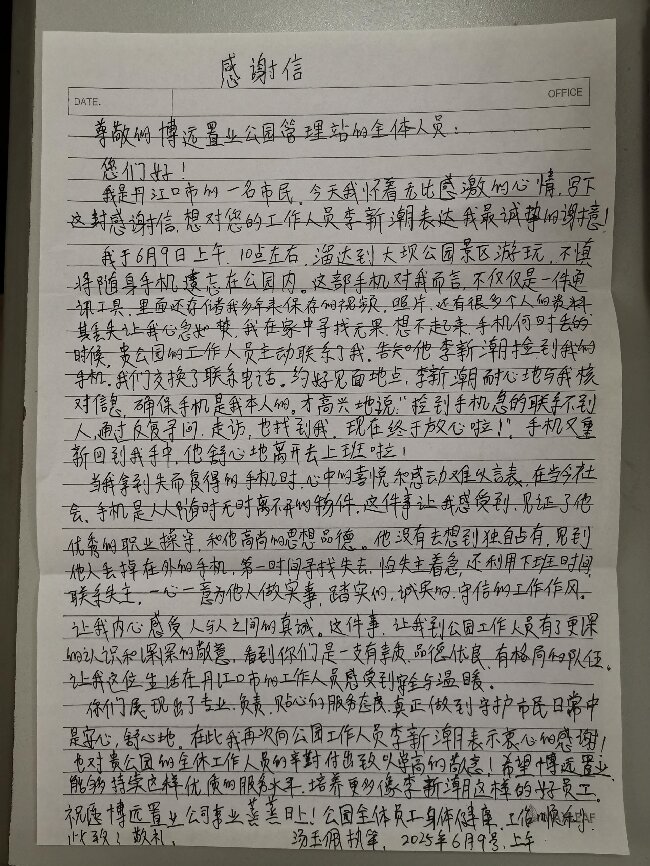 感谢信
DATE.
OFFICE
尊敬的博远置业公园管理站的全体人员：
您们好！
我是丹江口市的一名市民。今天我怀着无比感激的心情，写下
这封感谢信，想对您的工作人员李新潮表达我最诚挚的谢意！
我于6月9日上午，10点左右，溜达到大坝公园景区游玩，不慎
将随身手机遗忘在公园内。这部手机对我而言，不仅仅是一件通
讯工具，里面还存储我多年来保存的视频，照片，还有很多个人的资料
其丢失让我心急如焚，我在家中寻找无果，想不起来，手机何时丢的
时候，贵公园的工作人员主动联系了我。告知他李新潮捡到我的
手机。我们交换了联系电话。约好见面地点，李新潮耐心地与我核
对信息，确保手机是我本人的。才高兴地说："捡到手机急的联系不到
人，通过反复寻问，走访，也找到我，现在终于放心啦！"。手机又重
新回到我手中，他舒心地离开去上班啦！
当我拿到失而复得的手机时，心中的喜悦和感动难以言表，在当今社
会，手机是人人随时无时离不开的物件，这件事让我感受到，见证了他
优秀的职业操守，和他高尚的思想品德。他没有去想到独自占有，见到
他人丢掉在外的手机，第一时间寻找失主，怕失主着急，还利用下班时间，
联系失主，一心一意为他人做实事，踏实的，诚实的，守信的工作作风。
让我内心感受人与人之间的真诚。这件事，让我到公园工作人员有了更深
的认识和深深的敬意，看到你们是一支有素质，品德优良，有格局的队伍。
让我这位生活在丹江口市的工作人员感受到安全与温暖。
你们展现出了专业，负责，贴心的服务态度，真正做到守护市民日常中
是安心，舒心地。在此我再次向公园工作人员李新潮表示衷心的感谢！
也对贵公园的全体工作人员的辛勤付出致以崇高的敬意！希望博远置业
能够持续这样优质的服务水平，培养更多像李新潮这样的好员工。
祝愿博远置业公司事业蒸蒸日上！公园全体员工身体健康，工作顺利
此致：敬礼， 汤玉佩执笔，2025年6月9号，上午